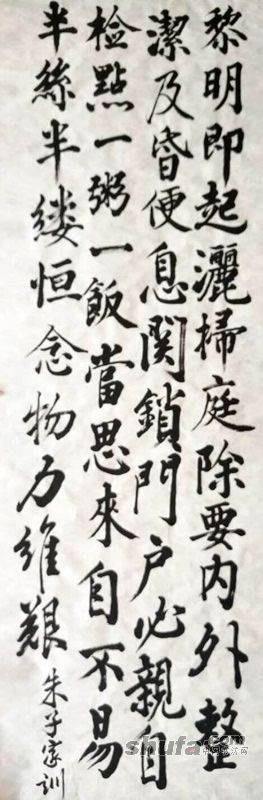 黎明即起灑掃庭除要内外整
潔及昏便息関鎖門户必親自
检點一粥一飯當思來自不易
半絲半缕恒念物力維艱
朱子家训